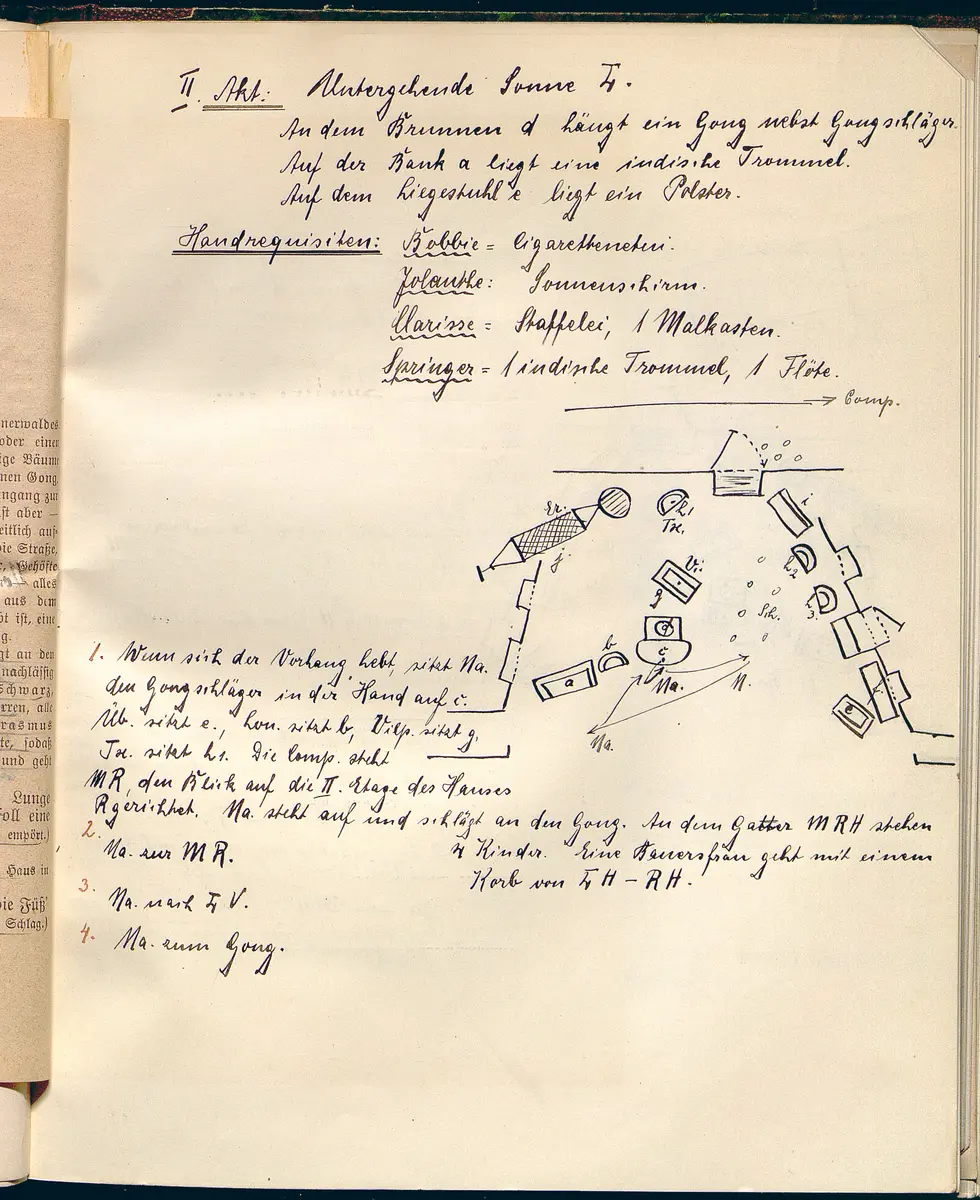 II. Akt: Untergehende Sonne L.
An dem Brunnen d hängt ein Gong nebst Gongschläger.
Auf der Bank a liegt eine indische Trommel.
Auf dem Liegestuhl e liegt ein Polster.
Handrequisiten: Bobbie = Cigarettenetui.
Jolanthe: Sonnenschirm.
Clarisse = Staffelei, 1 Malkasten.
Springer = 1 indische Trommel, 1 Flöte.
Comp.
Er.
j
h1
Tse.
i
Vi.
g
h2
h3.
Sch.
d
c
b
a
Na.
M.
Na.
e
1. Wenn sich der Vorhang hebt, sitzt Na.
den Gongschläger in der Hand auf c.
Üb. sitzt e., hon. sitzt b, Vilp. sitzt g,
Tse. sitzt h1. Die Comp. steht
MR, den Blick auf die II. Etage des Hauses
R gerichtet. Na. steht auf und schlägt an den Gong. An dem Gatter MRH stehen
4 Kinder. Eine Bauersfrau geht mit einem
Korb von LH - RH.
2. Na. zur MR.
3. Na. nach L V.
4. Na. zum Gong.
nerwaldes
oder einen
ige Bäume
nen Gong.
ngang zur
ist aber —
eitlich auf-
die Straße,
Gehöfte
alles
aus dem
öt ist, eine
g.
gt an den
nachlässig
schwarz,
erren, alle
rasmus
te, sodaß
und geht
Lunge
foll eine
empört.)
Haus in
die Füß'
Schlag.)